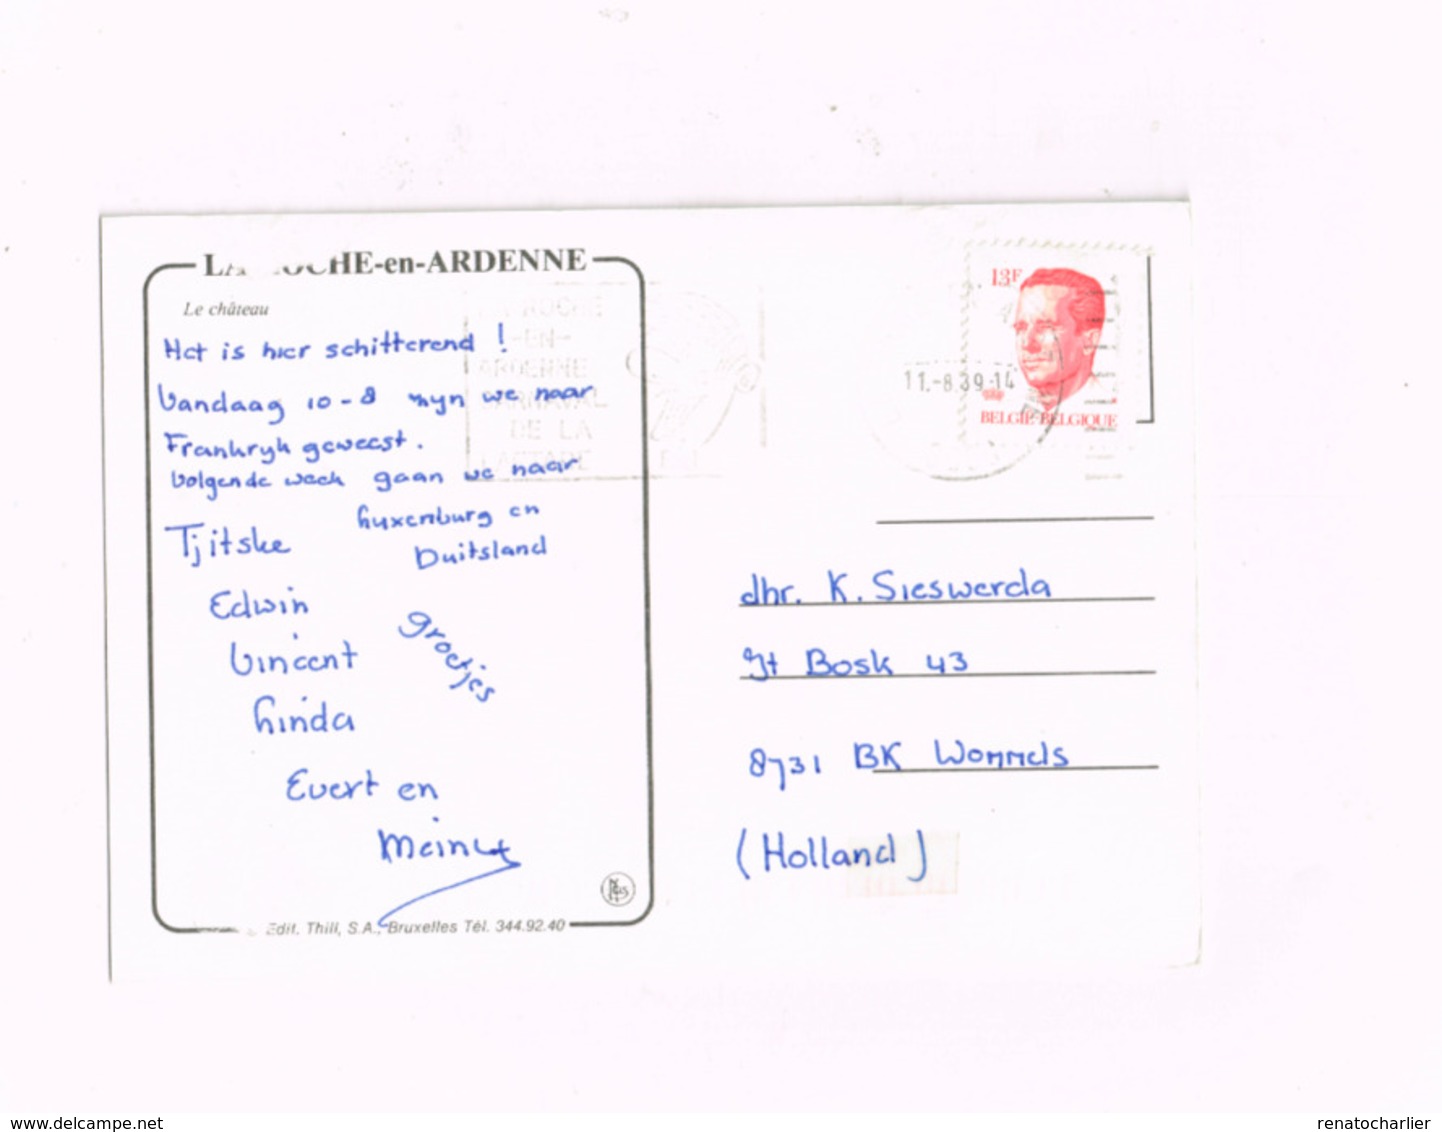 LA ROCHE-en-ARDENNE
Le château
Het is hier schitterend !
Vandaag 10-8 zijn we naar
Frankryk geweest.
Volgende week gaan we naar
Luxemburg en
Duitsland
Tjitske
Edwin
Vincent
Linda
groetjes
Evert en
Edit. Thill, S.A., Bruxelles Tél. 344.92.40
LA ROCHE
-EN-
ARDENNE
CARNAVAL
DE LA
13F
11.-8.89-14
BELGIE-BELGIQUE
dhr. K. Sieswerda
It Bosk 43
8731 BK Wommels
(Holland)
delcampe.net
renatocharlier